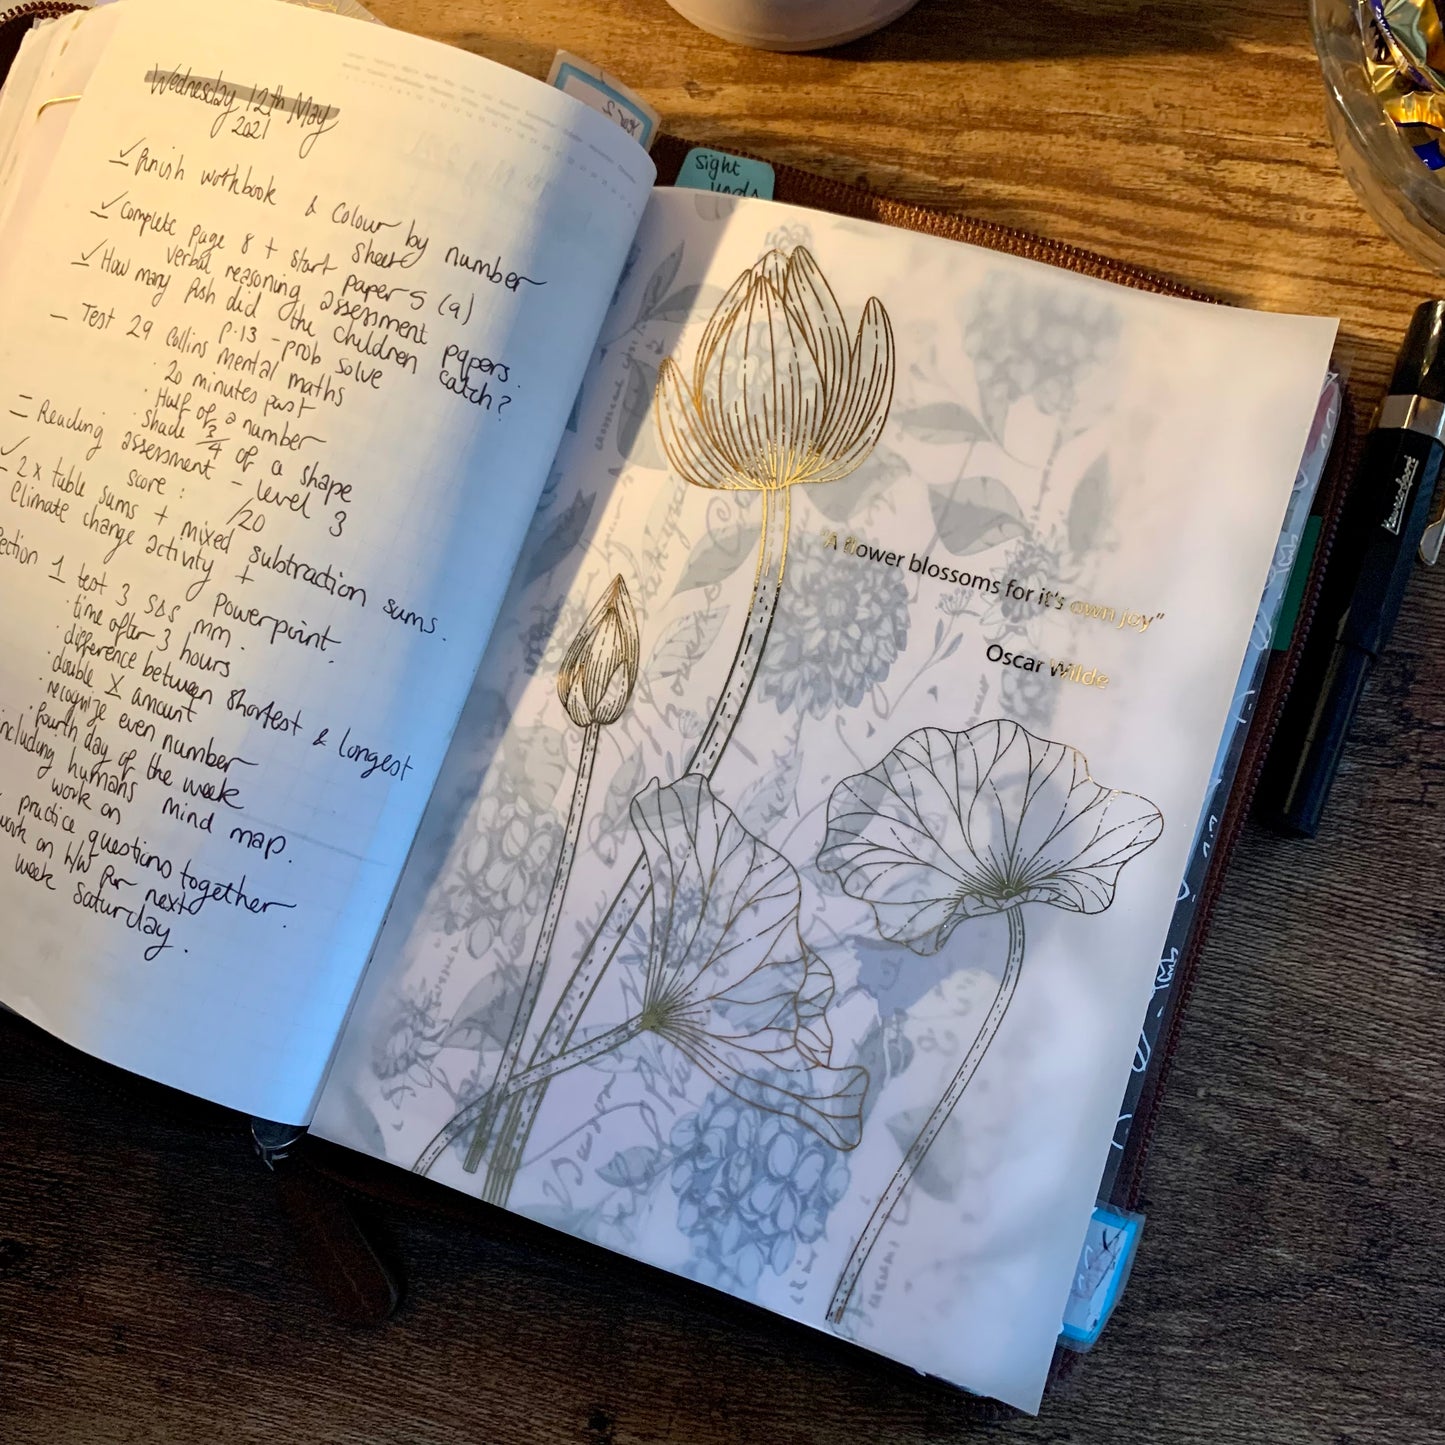 Wednesday 12th May
2021
✓ finish workbook & colour by number
sheet
✓ Complete page 8 + start paper 5 (a)
verbal reasoning assessment papers.
✓ How many fish did the children catch?
p.13 - prob solve
- Test 29 Collins mental maths
· 20 minutes past
· Half of a number
· shade 3/4 of a shape
= Reading assessment - level 3
score: /20
✓ 2 x table sums + mixed subtraction sums.
climate change activity + powerpoint.
Section 1 test 3 SDS mm.
· time after 3 hours
· difference between shortest & longest
· double X amount
· recognize even number
· fourth day of the week
including humans mind map.
work on
practice questions together.
work on h/w for next
week Saturday.
sight
Year 2
"A flower blossoms for it's own joy"
Oscar Wilde